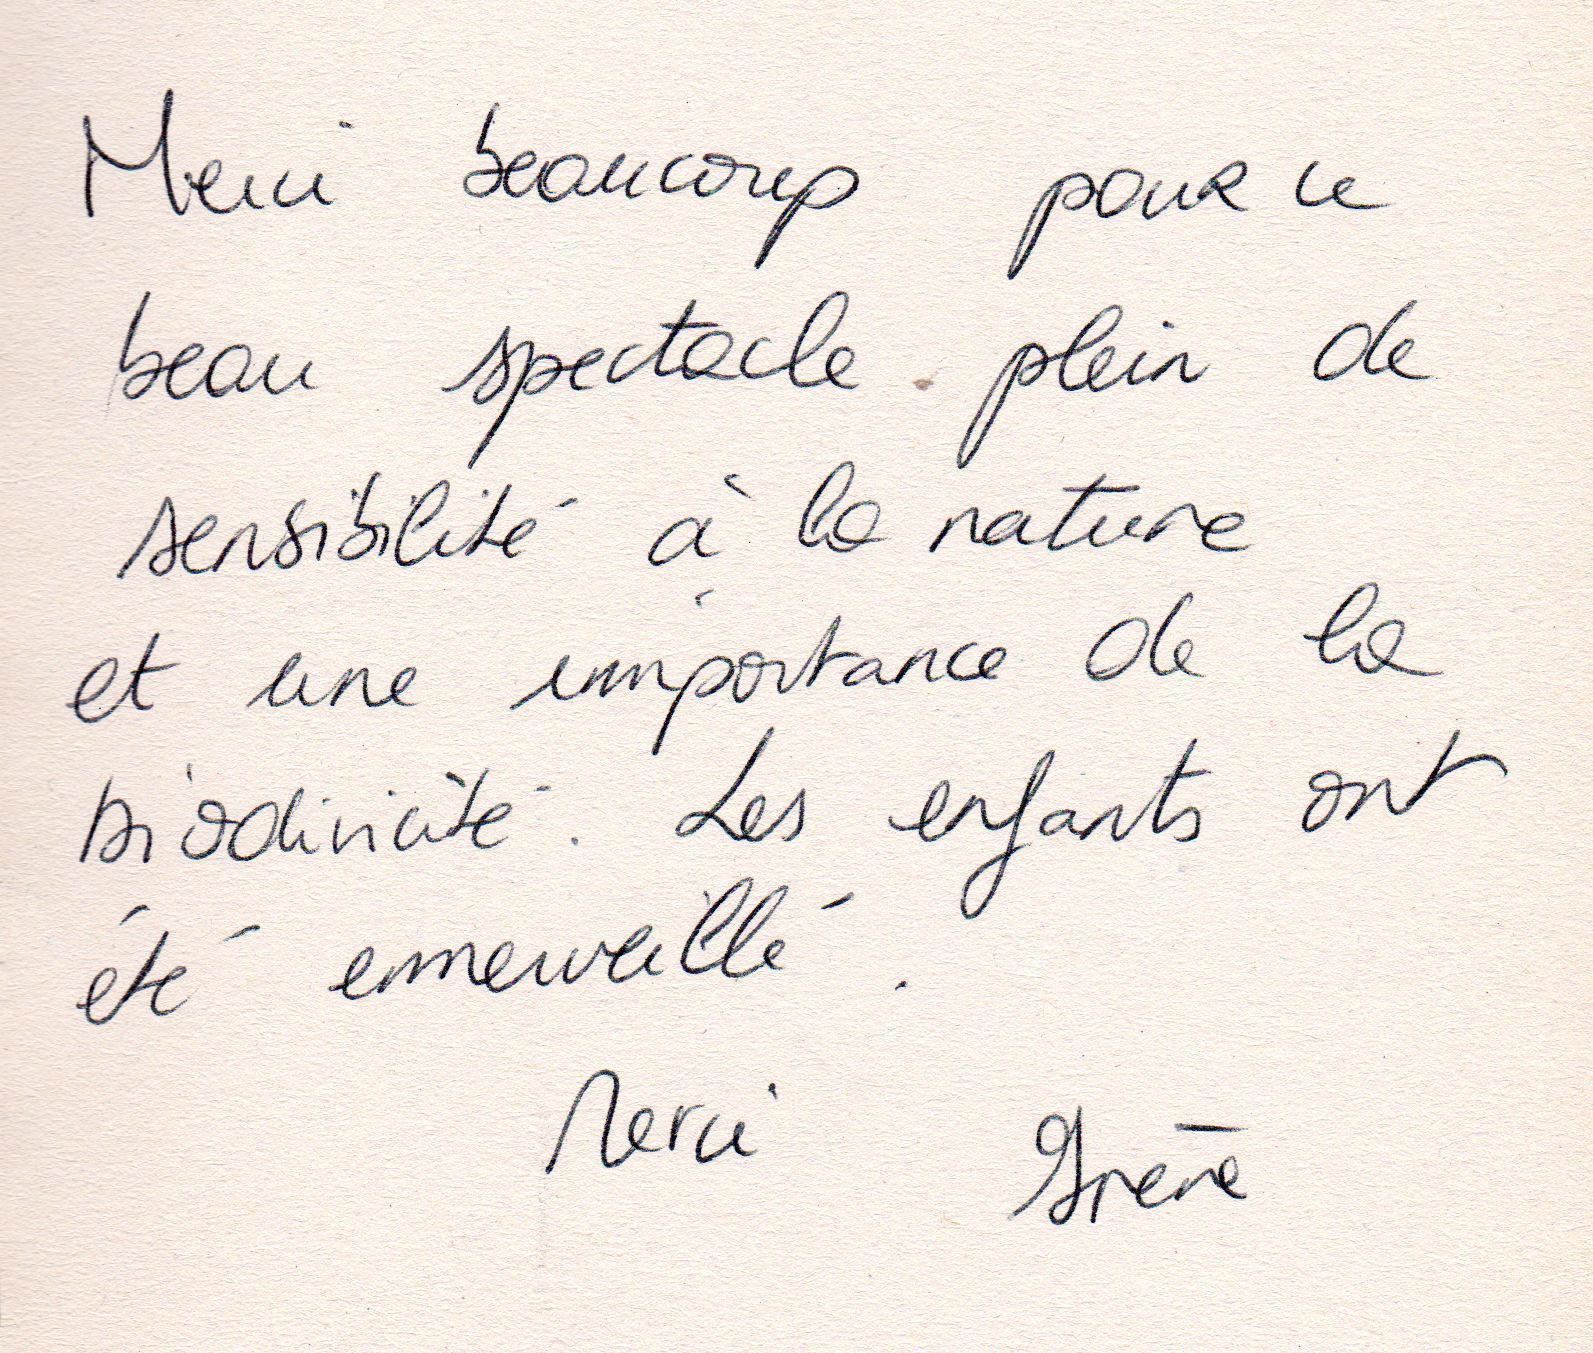 Merci beaucoup pour ce
beau spectacle plein de
sensibilité à la nature
et une importance de la
biodivicité. Les enfants ont
été emerveillé.
Merci Irène